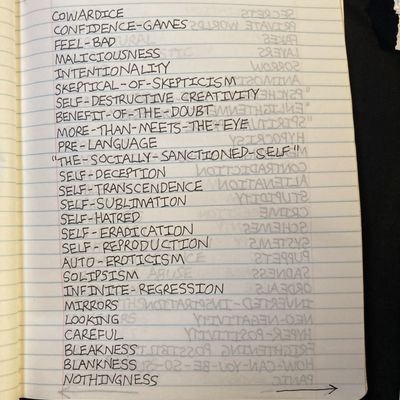 COWARDICE
CONFIDENCE-GAMES
FEEL-BAD
MALICIOUSNESS
INTENTIONALITY
SKEPTICAL-OF-SKEPTICISM
SELF-DESTRUCTIVE CREATIVITY
BENEFIT-OF-THE-DOUBT
MORE-THAN-MEETS-THE-EYE
PRE-LANGUAGE
"THE-SOCIALLY-SANCTIONED-SELF"
SELF-DECEPTION
SELF-TRANSCENDENCE
SELF-SUBLIMATION
SELF-HATRED
SELF-ERADICATION
SELF-REPRODUCTION
AUTO-EROTICISM
SOLIPSISM
INFINITE-REGRESSION
MIRRORS
LOOKING
CAREFUL
BLEAKNESS
BLANKNESS
NOTHINGNESS